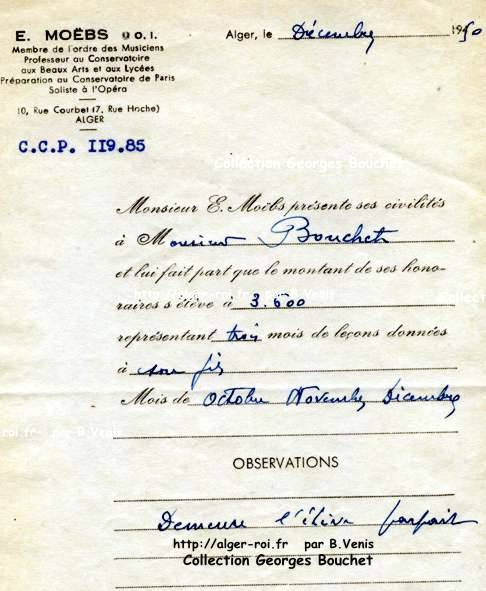 E. MOËBS O. I.
Alger, le Décembre 1950
Membre de l'ordre des Musiciens
Professeur au Conservatoire
aux Beaux Arts et aux Lycées
Préparation au Conservatoire de Paris
Soliste à l'Opéra
10, Rue Courbet (7, Rue Hoche)
ALGER
C.C.P. 119.85
Collection Georges Bouchet
Monsieur E. Moëbs présente ses civilités
à Monsieur Bouchet
et lui fait part que le montant de ses hono-
raires s'élève à 3.600
représentant trois mois de leçons données
à son fils
Mois de Octobre Novembre Décembre
-roi.fr par B.Venis
OBSERVATIONS
Demeure l'élève parfait
http://alger-roi.fr par B.Venis
Collection Georges Bouchet